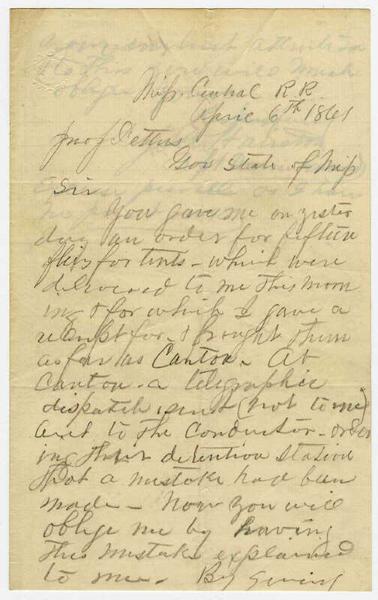 Miss Central R.R.
April 6th 1861
Jno J Pettus
Gov State of Miss
Sir
You gave me on yester
day an order for fifteen
flys for tents - which were
delivered to me this morn
ing & for which I gave a
receipt for. I brought them
as far as Canton. At
Canton - a telegraphic
dispatch sent (not to me)
and to the Conductor - order
ing their detention stating
that a mistake had been
made - Now you will
oblige me by having
this mistake explained
to me - By giving